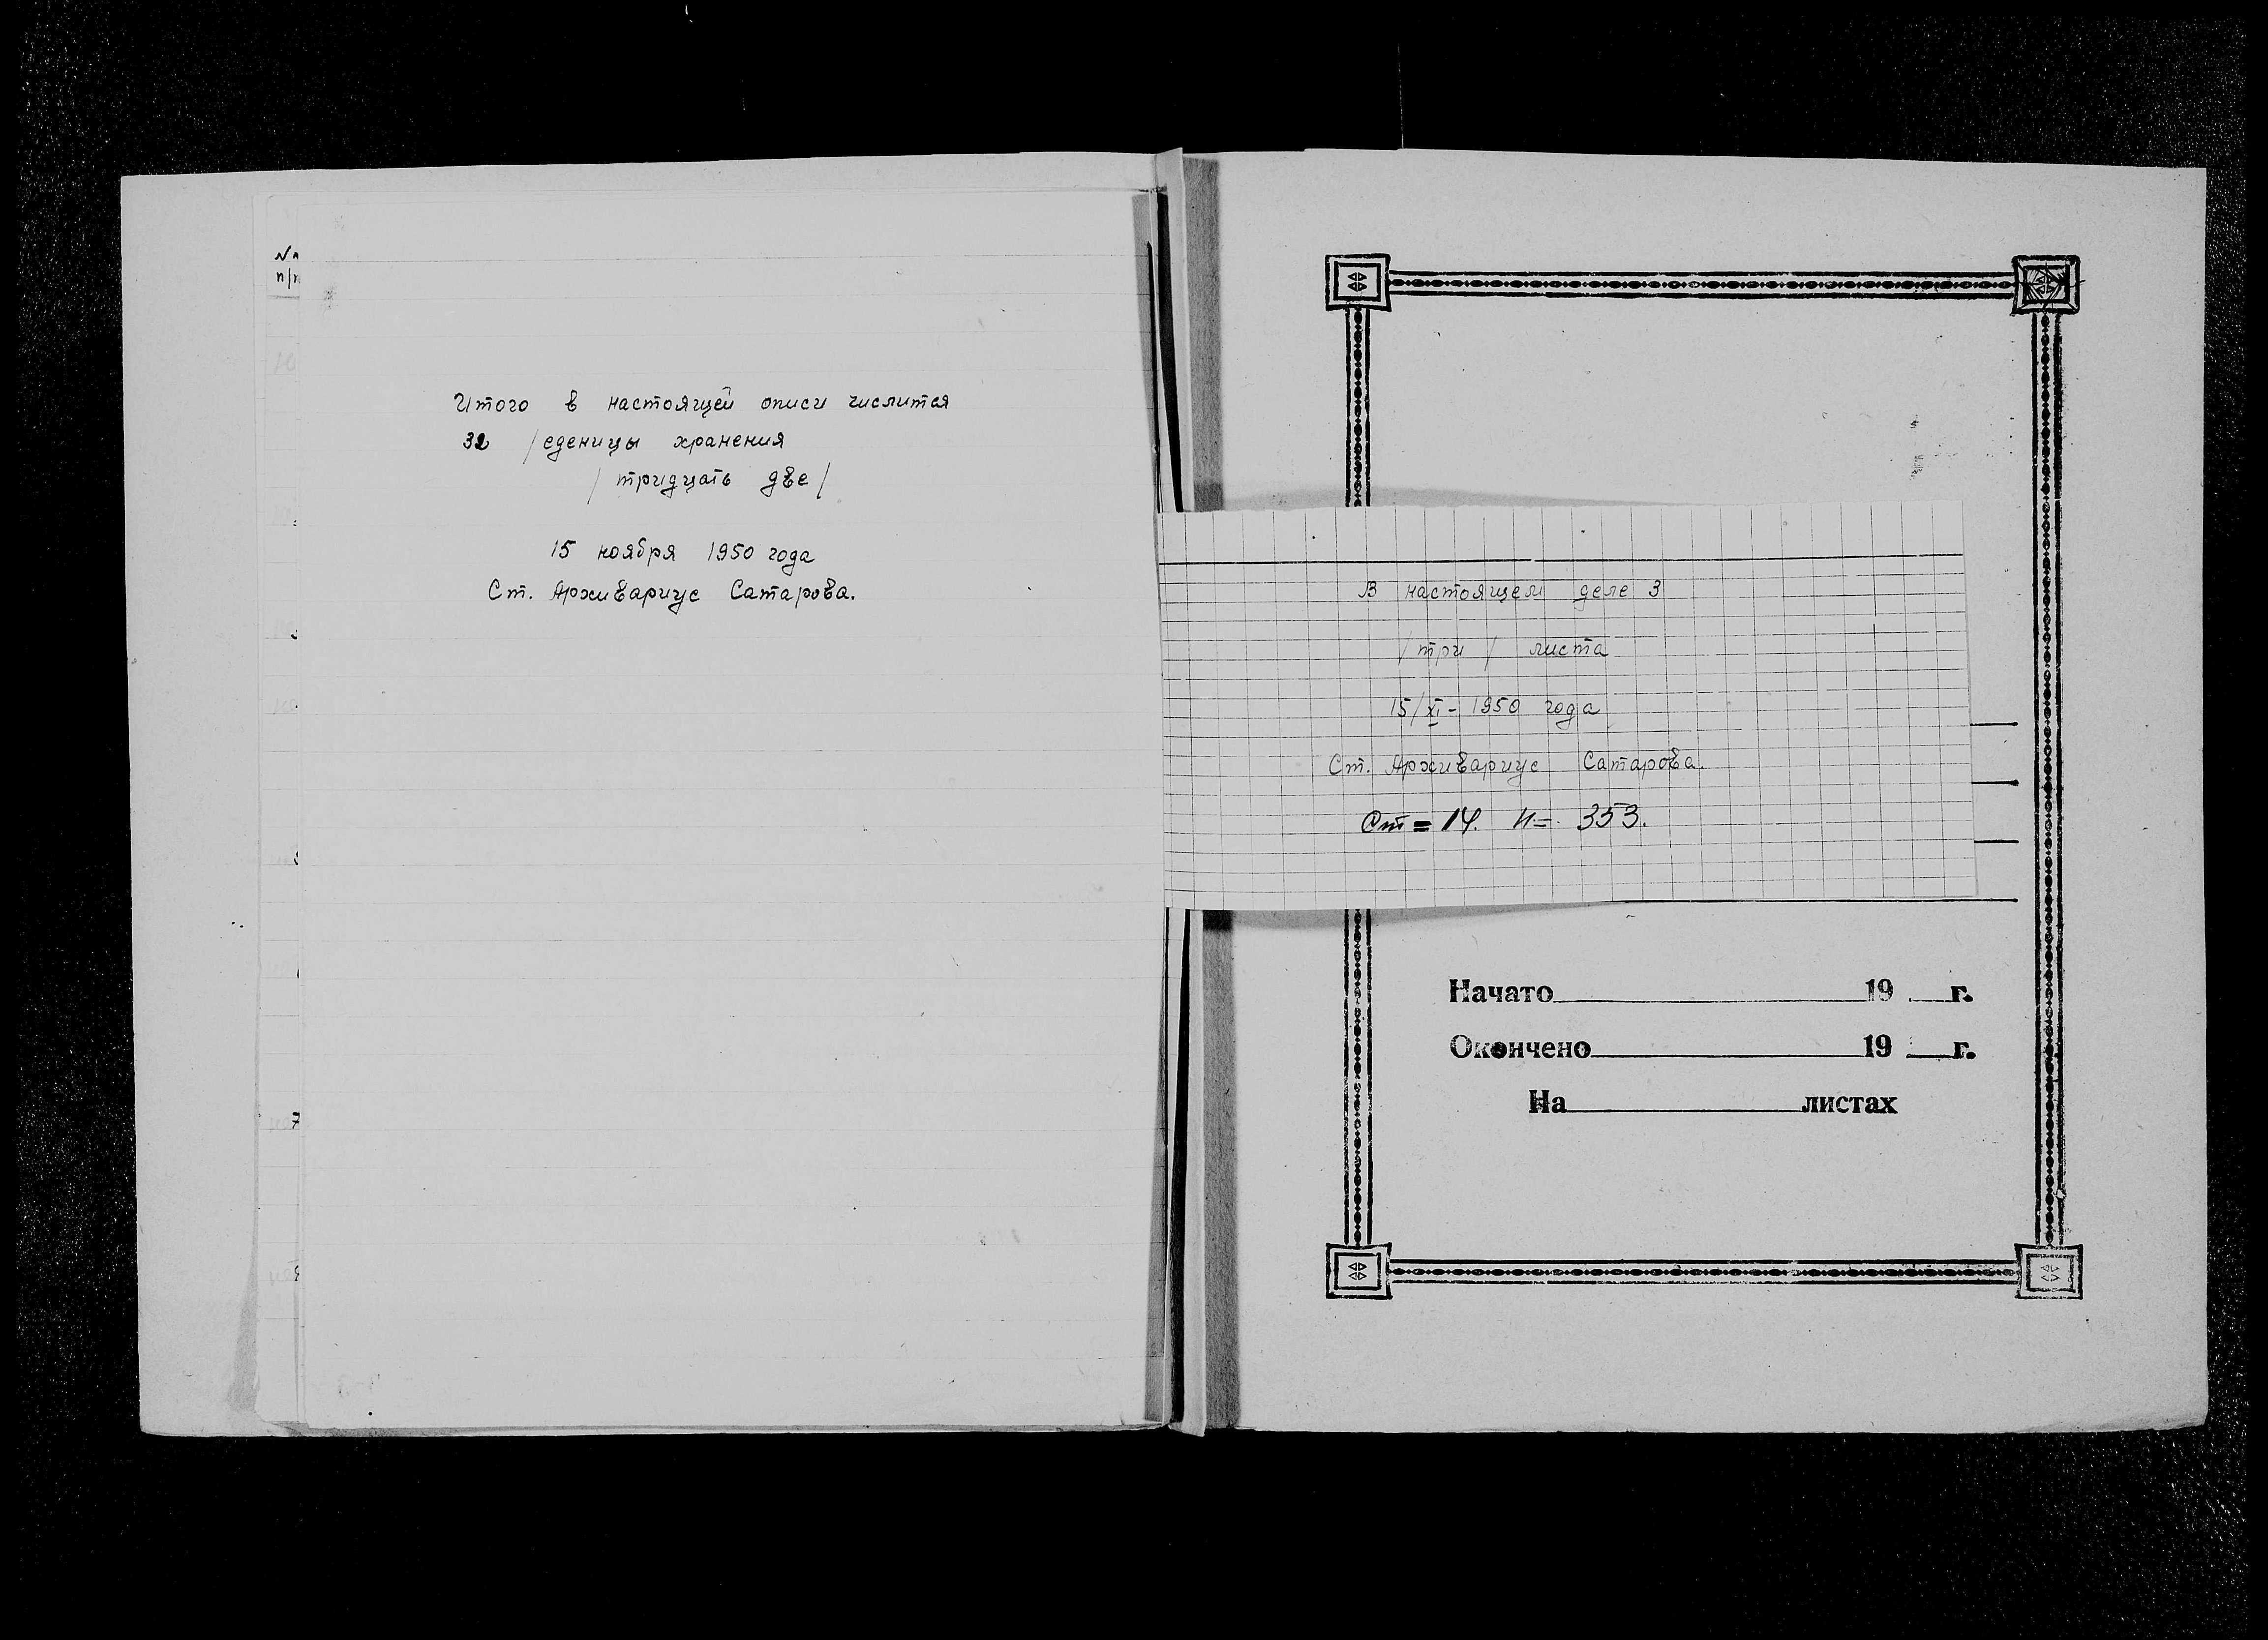 №
п/п
Итого в настоящей описи числится
32 /еденицы хранения
/ тридцать две /
15 ноября 1950 года
Ст. Архивариус Сатарова.
В настоящем деле 3
/ три / листа
15/XI - 1950 года
Ст. Архивариус Сатарова.
Ст = 14. Н = 353.
Начато 19 г.
Окончено 19 г.
На листах